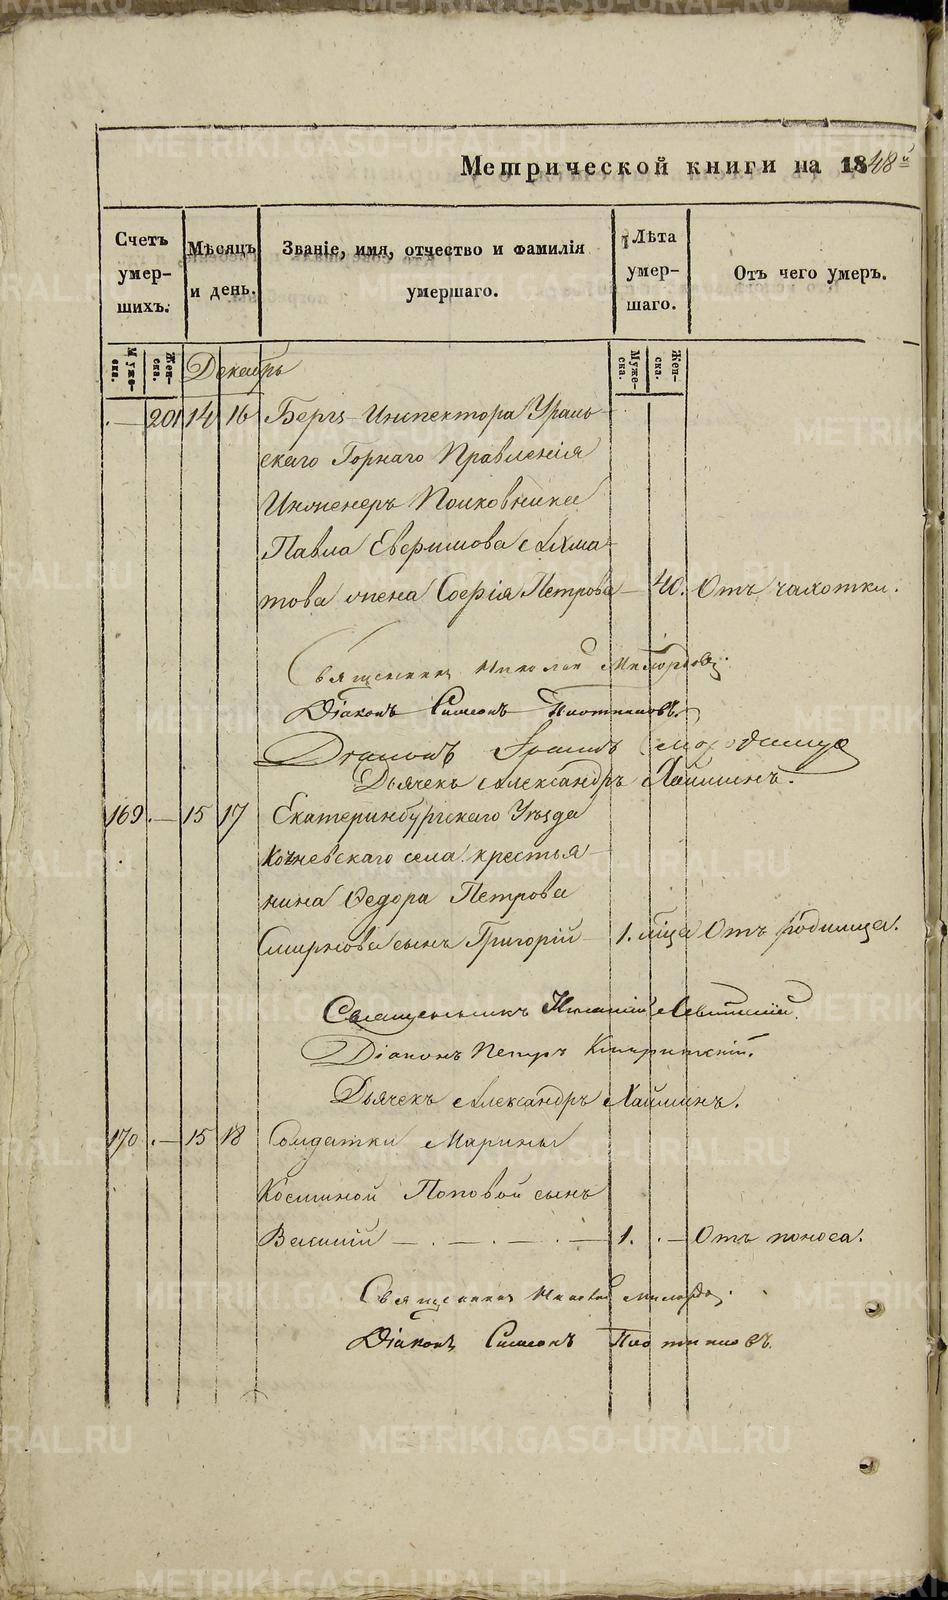 Метрической книги на 1848й
Счетъ умер-шихъ.
Мѣсяцъ и день.
Званіе, имя, отчество и фамилія умершаго.
Лѣта умер-шаго.
Отъ чего умеръ.
Муже-ска. Жен-ска.
Декабрь
Муже-ска. Жен-ска.
— 201 14 16 Бергъ-Инспектора Ураль-
скаго Горнаго Правленія
Инженеръ Полковника
Павла Еверсмова Ахма-
това жена Софія Петрова — 40. Отъ чахотки.
Священникъ Николай
Діаконъ Симеонъ Плотниковъ.
Діаконъ
Дьячекъ Александръ Хаймінъ.
169 — 15 17 Екатеринбургскаго Уѣзда
Кочневскаго села крестья-
нина Ѳедора Петрова
Смирнова сынъ Григорій — 1. мѣца Отъ родимца.
Священникъ Левитскій.
Діаконъ Петръ
Дьячекъ Александръ Хаймінъ.
170 — 15 18 Солдатки Марины
Косминой Поповой сынъ
Василій — 1. — Отъ поноса.
Священникъ Николай
Діаконъ Симеонъ Плотниковъ.
METRIKI.GASO-URAL.RU